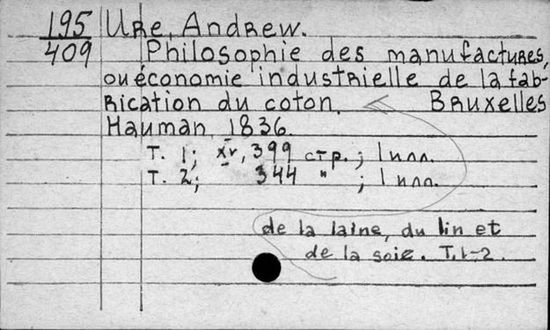 195
409
Ure, Andrew.
Philosophie des manufactures,
ou économie industrielle de la fab-
rication du coton. Bruxelles
Hauman, 1836.
T. 1; XV, 399 стр.; 1 илл.
T. 2; 344 " ; 1 илл.
de la laine, du lin et
de la soie. T. 1-2.